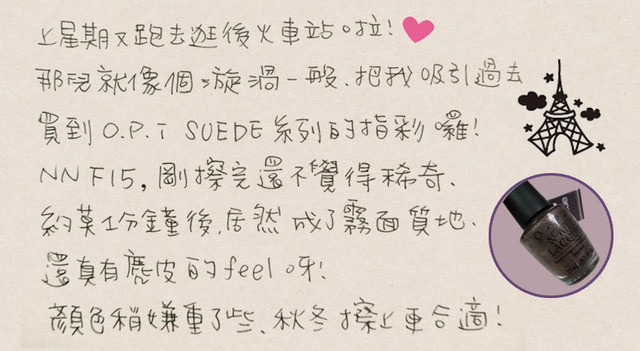 上星期又跑去逛後火車站啦!
那兒就像個漩渦一般、把我吸引過去
買到 O.P.I SUEDE 系列的指彩囉!
NN F15,剛擦完還不覺得稀奇、
約莫1分鐘後,居然成了霧面質地、
還真有麂皮的feel呀!
顏色稍嫌重了些、秋冬擦上更合適!